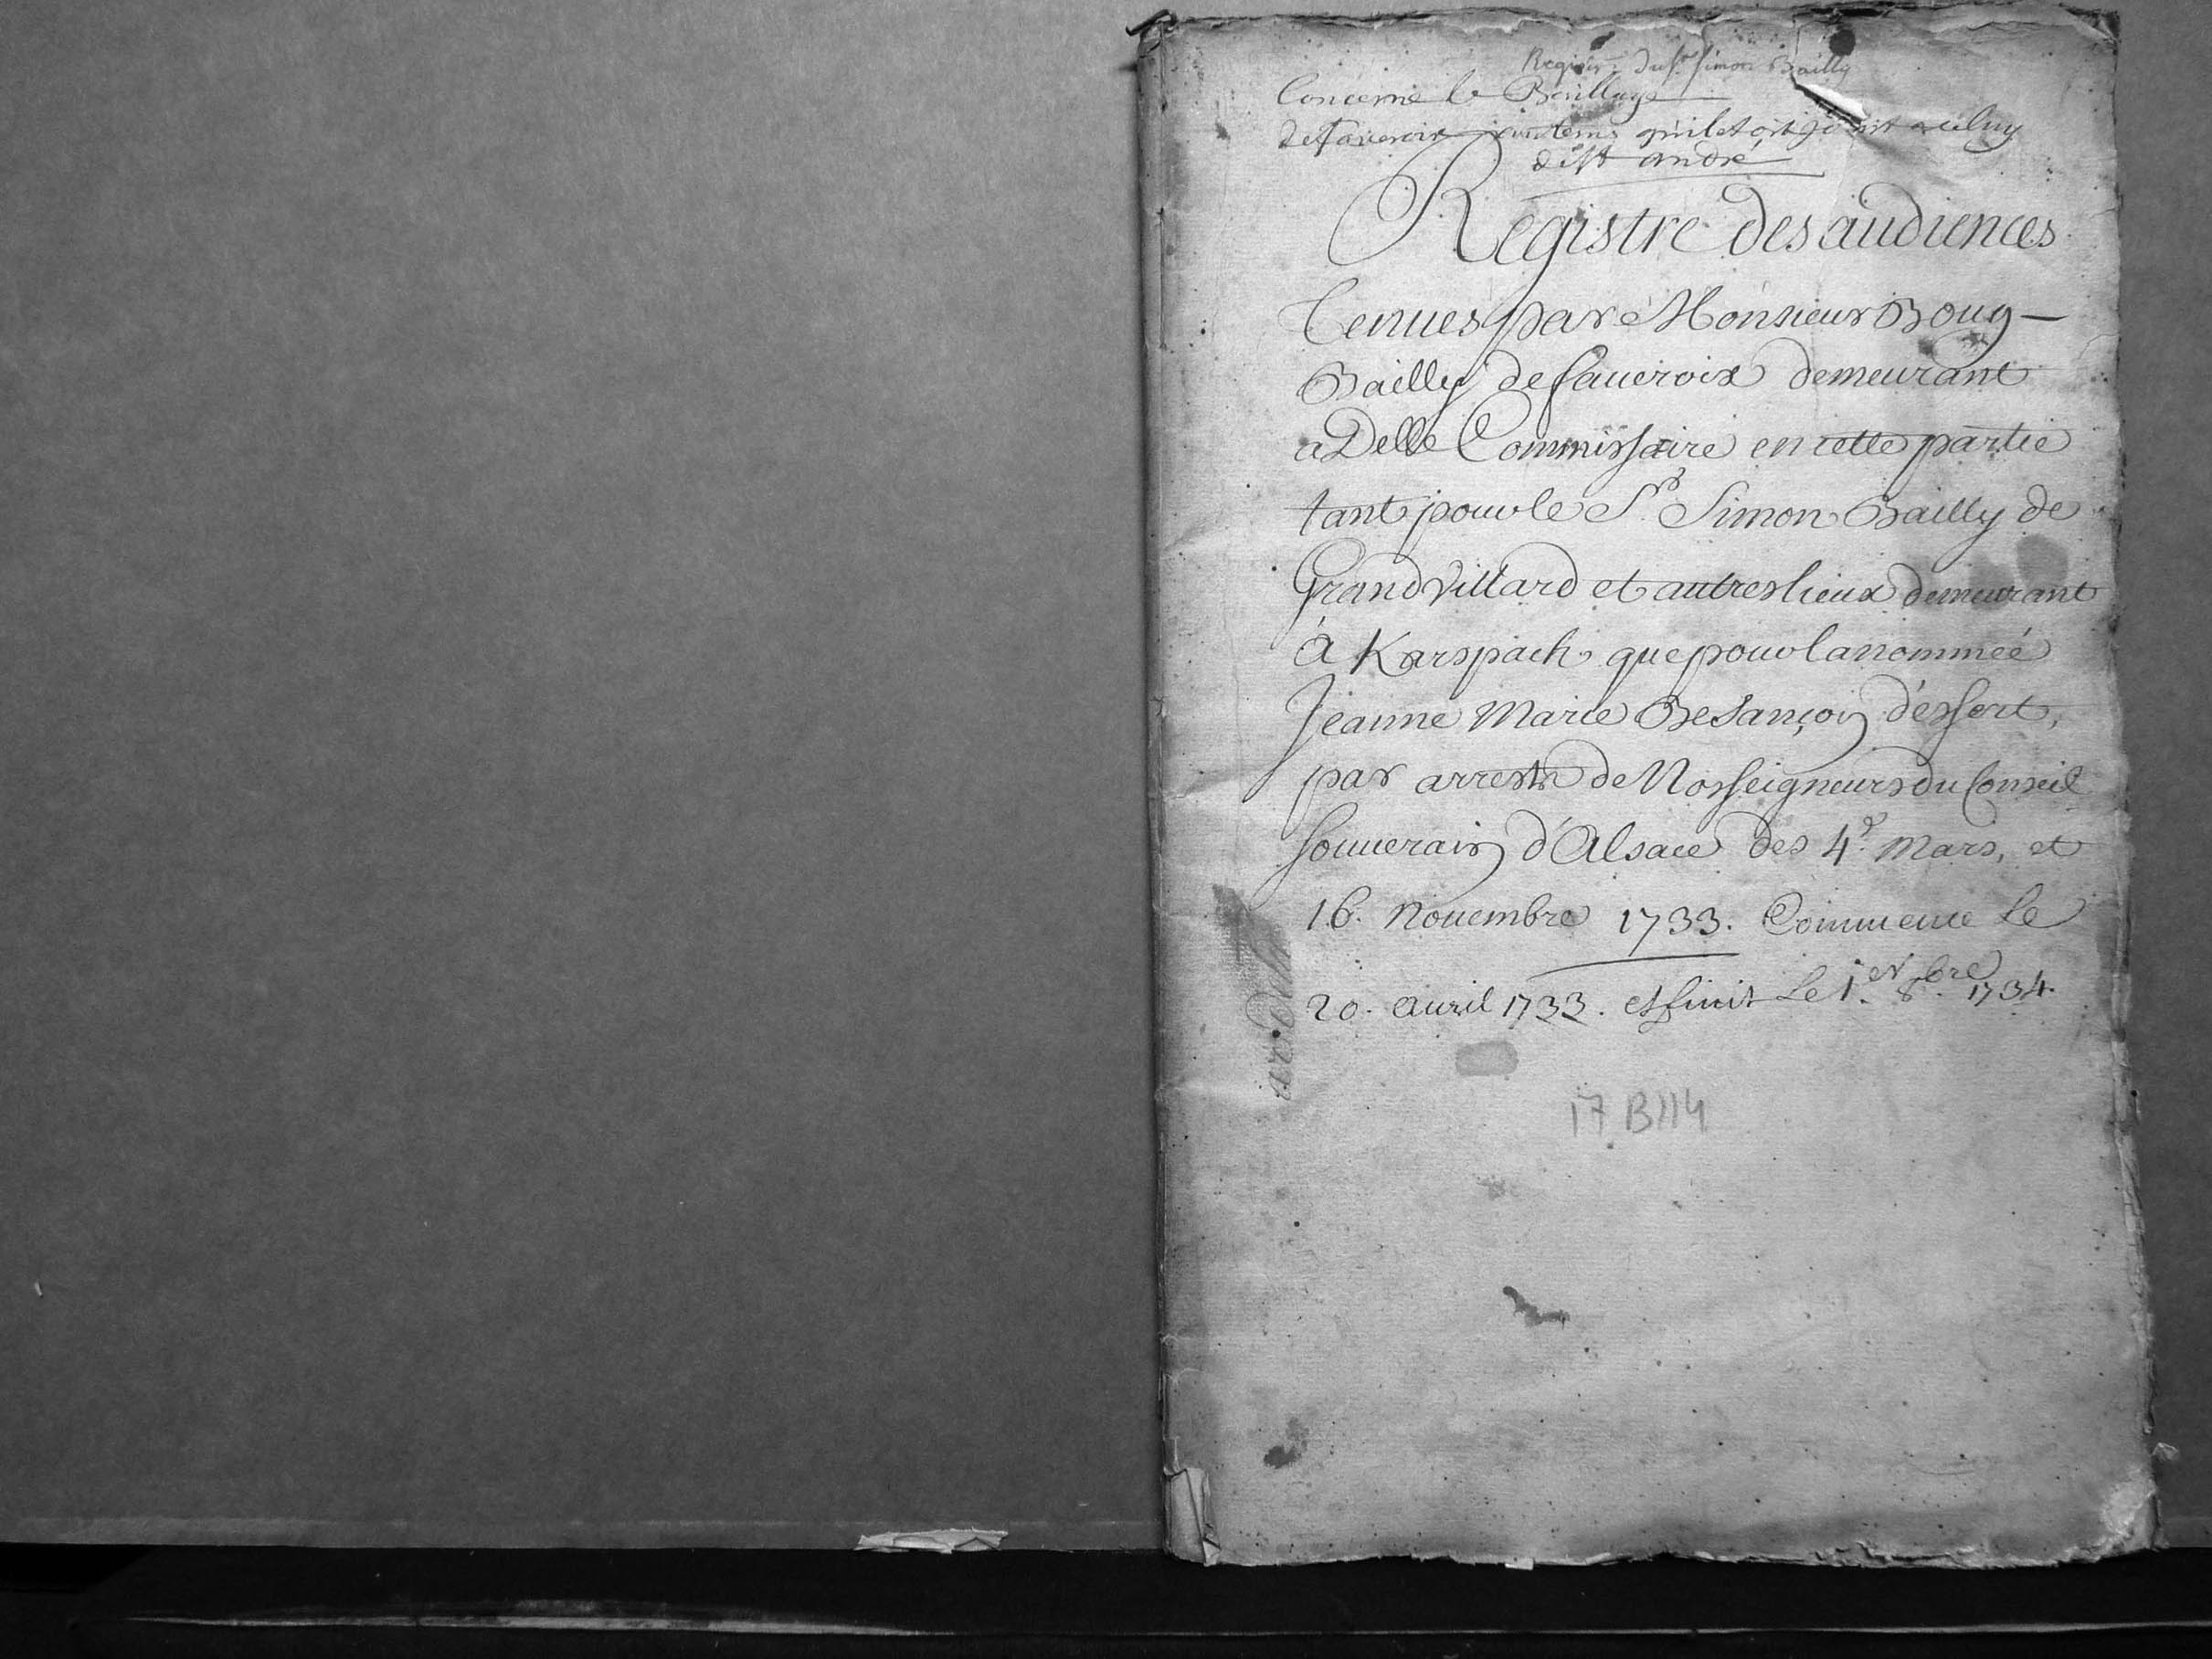 Registre du Sr Simon Bailly
Concerne le Bailliage
de faveroix qu'il etoit joint a celuy
de St andré
Registre des audiences
Tenues par Monsieur Boug -
Bailly de faueroix demeurant
a Delle Commissaire en cette partie
tant pour le Sr. Simon Bailly de
Grandvillard et autres lieux demeurant
à Karspach que pour la nommée
Jeanne Marie Besançon d'essert,
par arrests de Nosseigneurs du Conseil
souuerain d'Alsace des 4e. Mars, et
16. Nouembre 1733. Commence le
20. Auril 1733. et finit le 1er. 8bre. 1734.
17 B 114